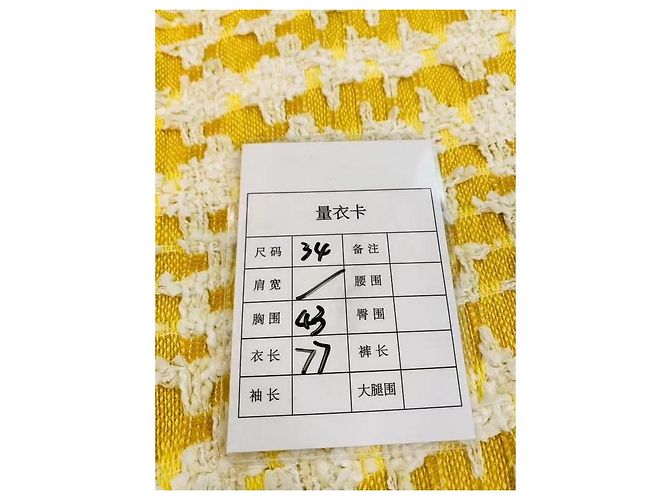 量衣卡
尺码 34 备注
肩宽 / 腰围
胸围 43 臀围
衣长 77 裤长
袖长 大腿围